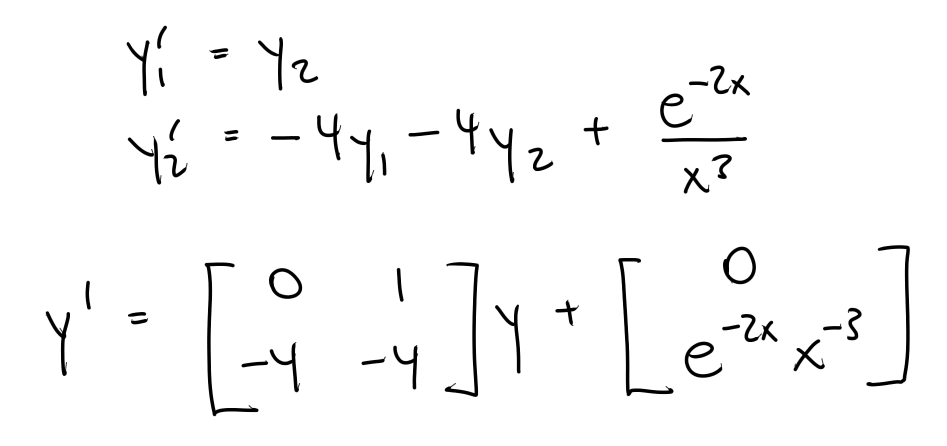 y₁' = y₂
y₂' = -4y₁ - 4y₂ + e^{-2x}/x^3
y' = [0 1; -4 -4] y + [0; e^{-2x} x^{-3}]